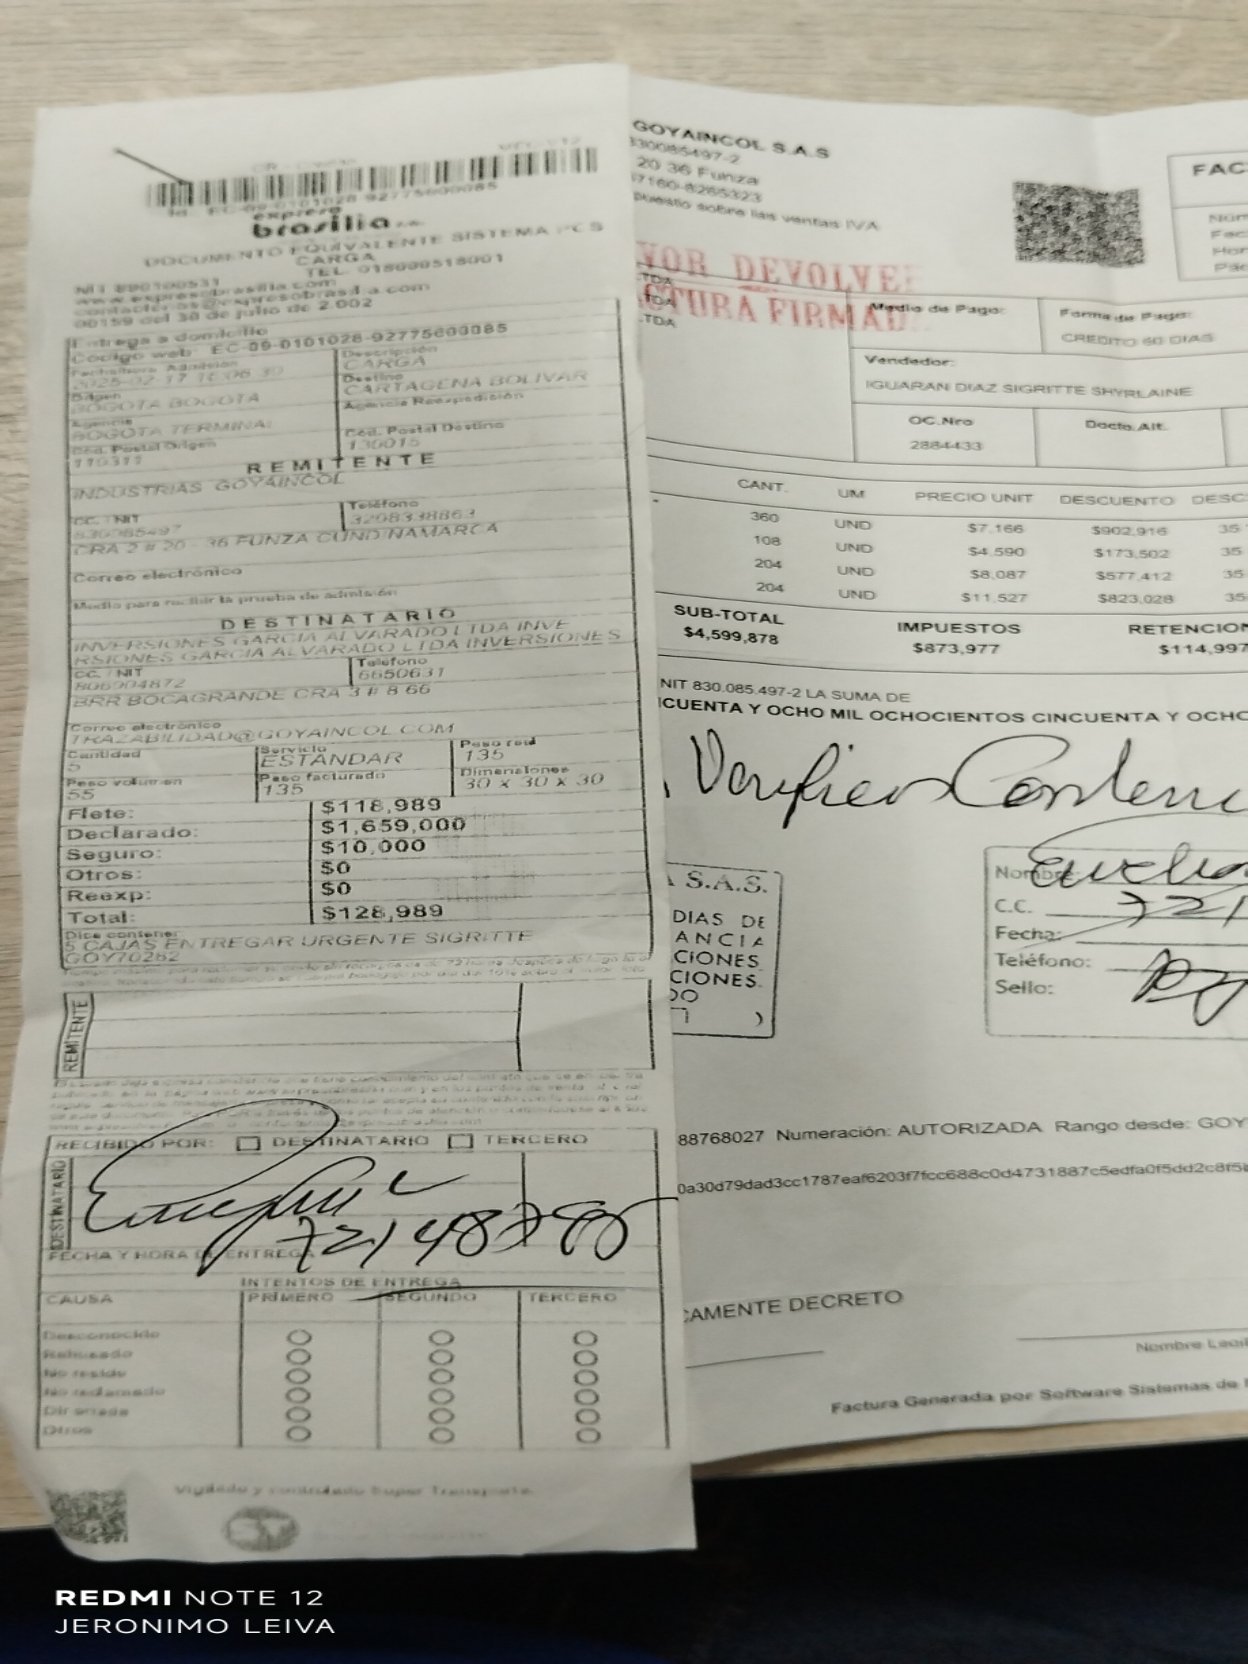 Id. EC-09-0101028-92775600085
expreso
brasilia s.a.
DOCUMENTO EQUIVALENTE SISTEMA PCS
CARGA
TEL. 018000518001
NIT 890100531
www.expresobrasilia.com
contactenos@expresobrasilia.com
00159 del 30 de julio de 2.002
Entrega a domicilio
Codigo web: EC-09-0101028-92775600085
Fecha/hora Admisión
2025-02-17 16:06:30
Descripción
CARGA
Origen
BOGOTA BOGOTA
Destino
CARTAGENA BOLIVAR
Agencia
BOGOTA TERMINAL
Agencia Reexpedición
Cód. Postal Origen
110311
Cód. Postal Destino
130015
REMITENTE
INDUSTRIAS GOYAINCOL
CC. / NIT
830085497
Teléfono
3208338863
CRA 2 # 20 - 36 FUNZA CUNDINAMARCA
Correo electrónico
Medio para recibir la prueba de admisión
DESTINATARIO
INVERSIONES GARCIA ALVARADO LTDA INVE
RSIONES GARCIA ALVARADO LTDA INVERSIONES
CC. / NIT
806004872
Teléfono
6650631
BRR BOCAGRANDE CRA 3 # 8 66
Correo electrónico
TRAZABILIDAD@GOYAINCOL.COM
Cantidad
5
Servicio
ESTANDAR
Peso real
135
Peso volumen
55
Peso facturado
135
Dimensiones
30 x 30 x 30
Flete: $118,989
Declarado: $1,659,000
Seguro: $10,000
Otros: $0
Reexp: $0
Total: $128,989
Dice contener
5 CAJAS ENTREGAR URGENTE SIGRITTE
GOY70282
REMITENTE
RECIBIDO POR: DESTINATARIO TERCERO
DESTINATARIO
72148785
FECHA Y HORA DE ENTREGA
INTENTOS DE ENTREGA
CAUSA PRIMERO SEGUNDO TERCERO
Desconocido
Rehusado
No reside
No reclamado
Dir errada
Otros
Vigilado y controlado Super Transporte
GOYAINCOL S.A.S
830085497-2
20 36 Funza
7160-8265323
puesto sobre las ventas IVA
VOR DEVOLVER
CTURA FIRMAD
LTDA
LTDA
LTDA
FAC
Medio de Pago:
Forma de Pago:
CREDITO 60 DIAS
Vendedor:
IGUARAN DIAZ SIGRITTE SHYRLAINE
OC.Nro
2884433
Docto.Alt.
CANT. UM PRECIO UNIT DESCUENTO DESC
360 UND $7,166 $902,916 35
108 UND $4,590 $173,502 35
204 UND $8,087 $577,412 35
204 UND $11,527 $823,028 35
SUB-TOTAL IMPUESTOS RETENCION
$4,599,878 $873,977 $114,997
NIT 830.085.497-2 LA SUMA DE
CUENTA Y OCHO MIL OCHOCIENTOS CINCUENTA Y OCHO
S.A.S.
DIAS DE
ANCIA
CIONES
CIONES.
DO
)
Nombre:
C.C. 721
Fecha:
Teléfono:
Sello:
88768027 Numeración: AUTORIZADA Rango desde: GOY
0a30d79dad3cc1787eaf6203f7fcc688c0d4731887c5edfa0f5dd2c8f5
CAMENTE DECRETO
Nombre Legi
Factura Generada por Software Sistemas de
REDMI NOTE 12
JERONIMO LEIVA